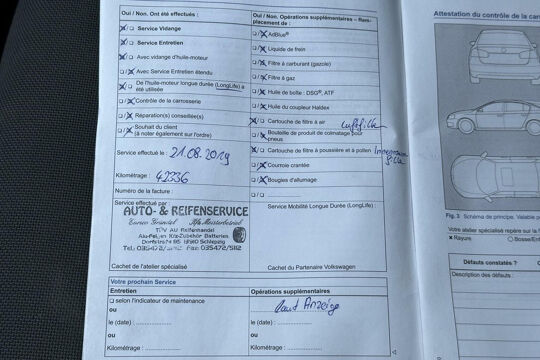 Oui / Non. Ont été effectués :
Service Vidange
Service Entretien
Avec vidange d'huile-moteur
Avec Service Entretien étendu
De l'huile-moteur longue durée (LongLife) a
été utilisée
Contrôle de la carrosserie
Réparation(s) conseillée(s)
Souhait du client
(à noter également sur l'ordre)
Service effectué le : 21.08.2019
Kilométrage : 42336
Numéro de la facture :
Service effectué par :
AUTO- & REIFENSERVICE
Kfz-Meisterbetrieb
TÜV AU Reifenhandel
Alu-Felgen Kfz-Zubehör Batterien
Cachet de l'atelier spécialisé
Oui / Non. Opérations supplémentaires – Rem-
placement de :
AdBlue®
Liquide de frein
Filtre à carburant (gazole)
Filtre à gaz
Huile de boîte : DSG®, ATF
Huile du coupleur Haldex
Cartouche de filtre à air Luftfilter
Bouteille de produit de colmatage pour
pneus
Cartouche de filtre à poussière et à pollen
Courroie crantée
Bougies d'allumage
Service Mobilité Longue Durée (LongLife) :
Cachet du Partenaire Volkswagen
Votre prochain Service
Entretien
selon l'indicateur de maintenance
ou
le (date) :
ou
Kilométrage :
Opérations supplémentaires
Laut Anzeige
le (date) :
ou
Kilométrage :
Attestation du contrôle de la car
Fig. 3 Schéma de principe. Valable p
Votre atelier spécialisé repère sur la f
Rayure
Bosse/Enf
Défauts constatés ?
Description des défauts :